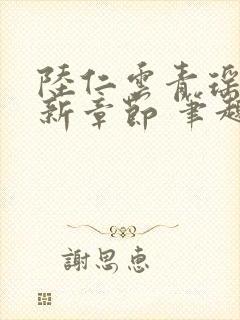 陸仁雲青瑶
新章節 筆趣
謝思惠